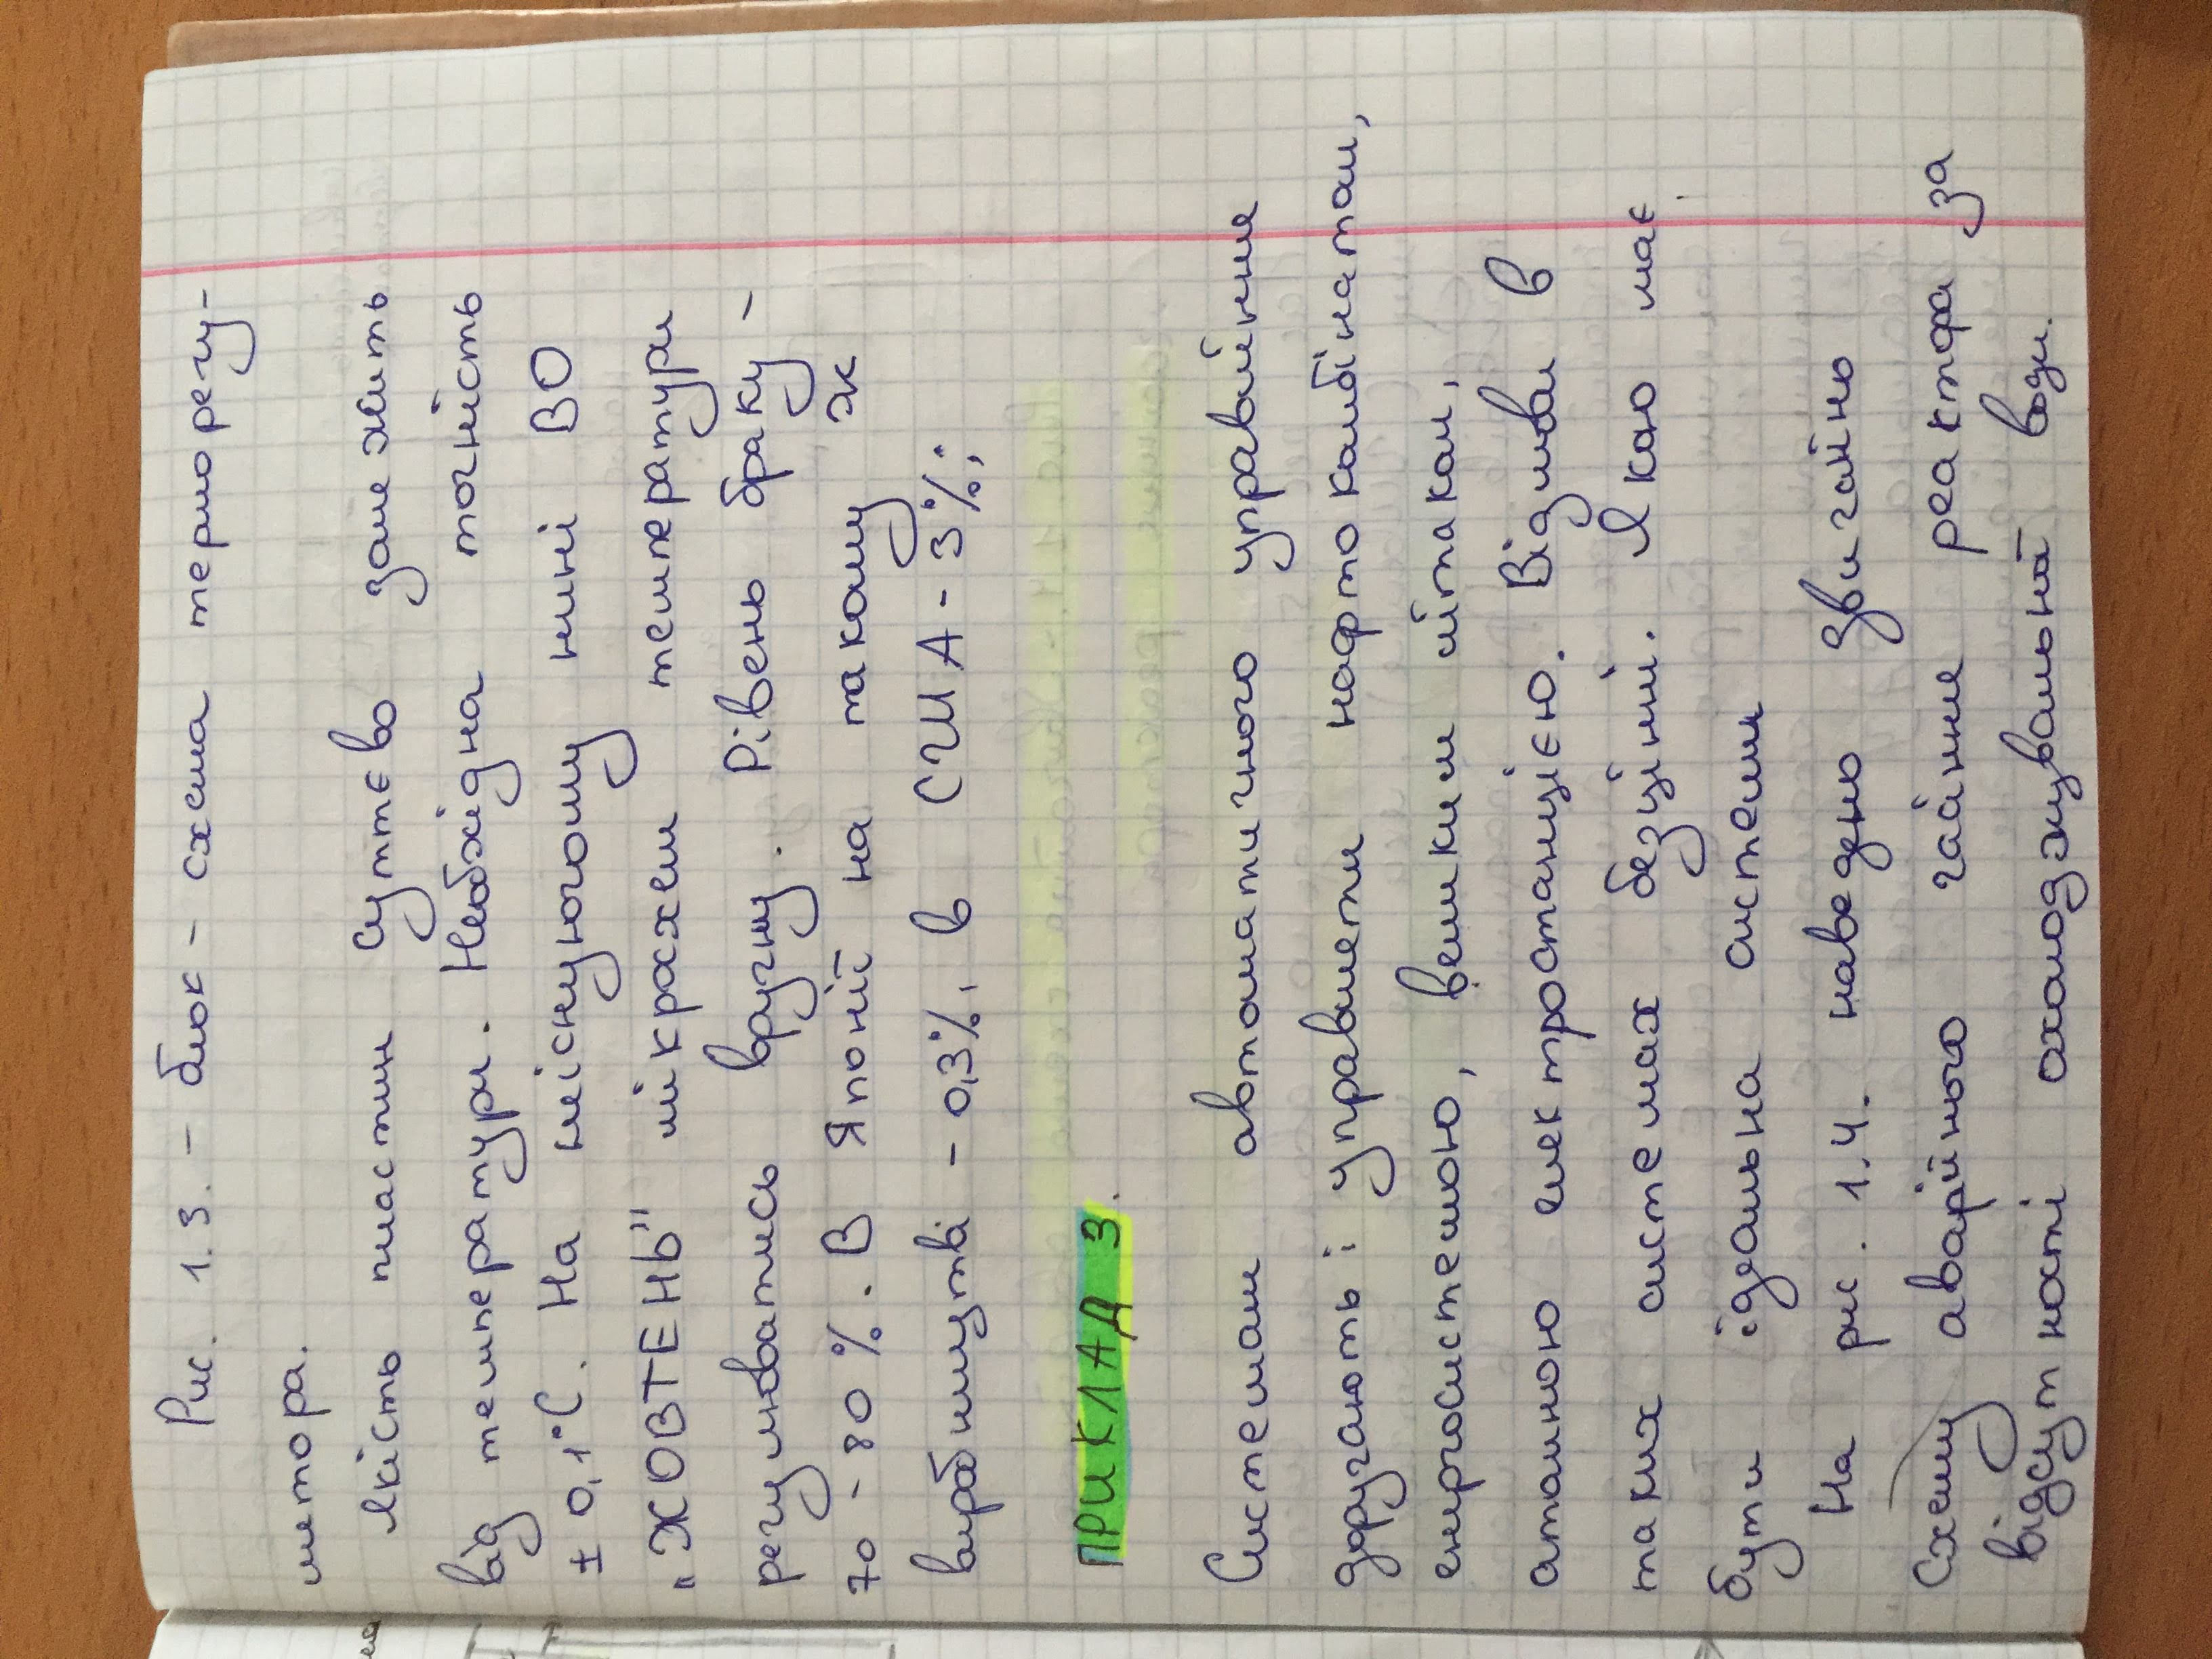 Рис. 1.3. - блок - схема терморегу-
лятора.
Якість пластин суттєво залежить
від температури. Необхідна точність
± 0,1°С. На існуючому нині ВО
"ЖОВТЕНЬ" мікросхем температури
регулюватись вручну. Рівень браку -
70 - 80 %. В Японії на такому ж
виробництві - 0,3%, в США - 3%;
ПРИКЛАД 3.
Системам автоматичного управління
доручають і управляти нафтокомбінатом,
енергосистемою, великим літаком,
атомною електростанцією. Відмови в
таких системах безцінні. Якою має
бути ідеальна система
На рис. 1.4. наведено
схему аварійного гасіння реактора за
відсутності охолоджувальної води.